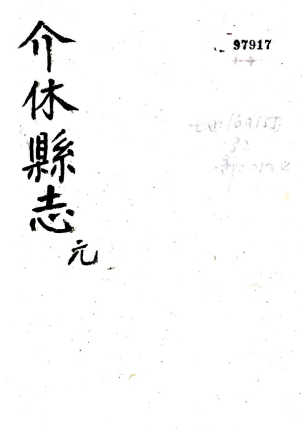 介休縣志
元
97917